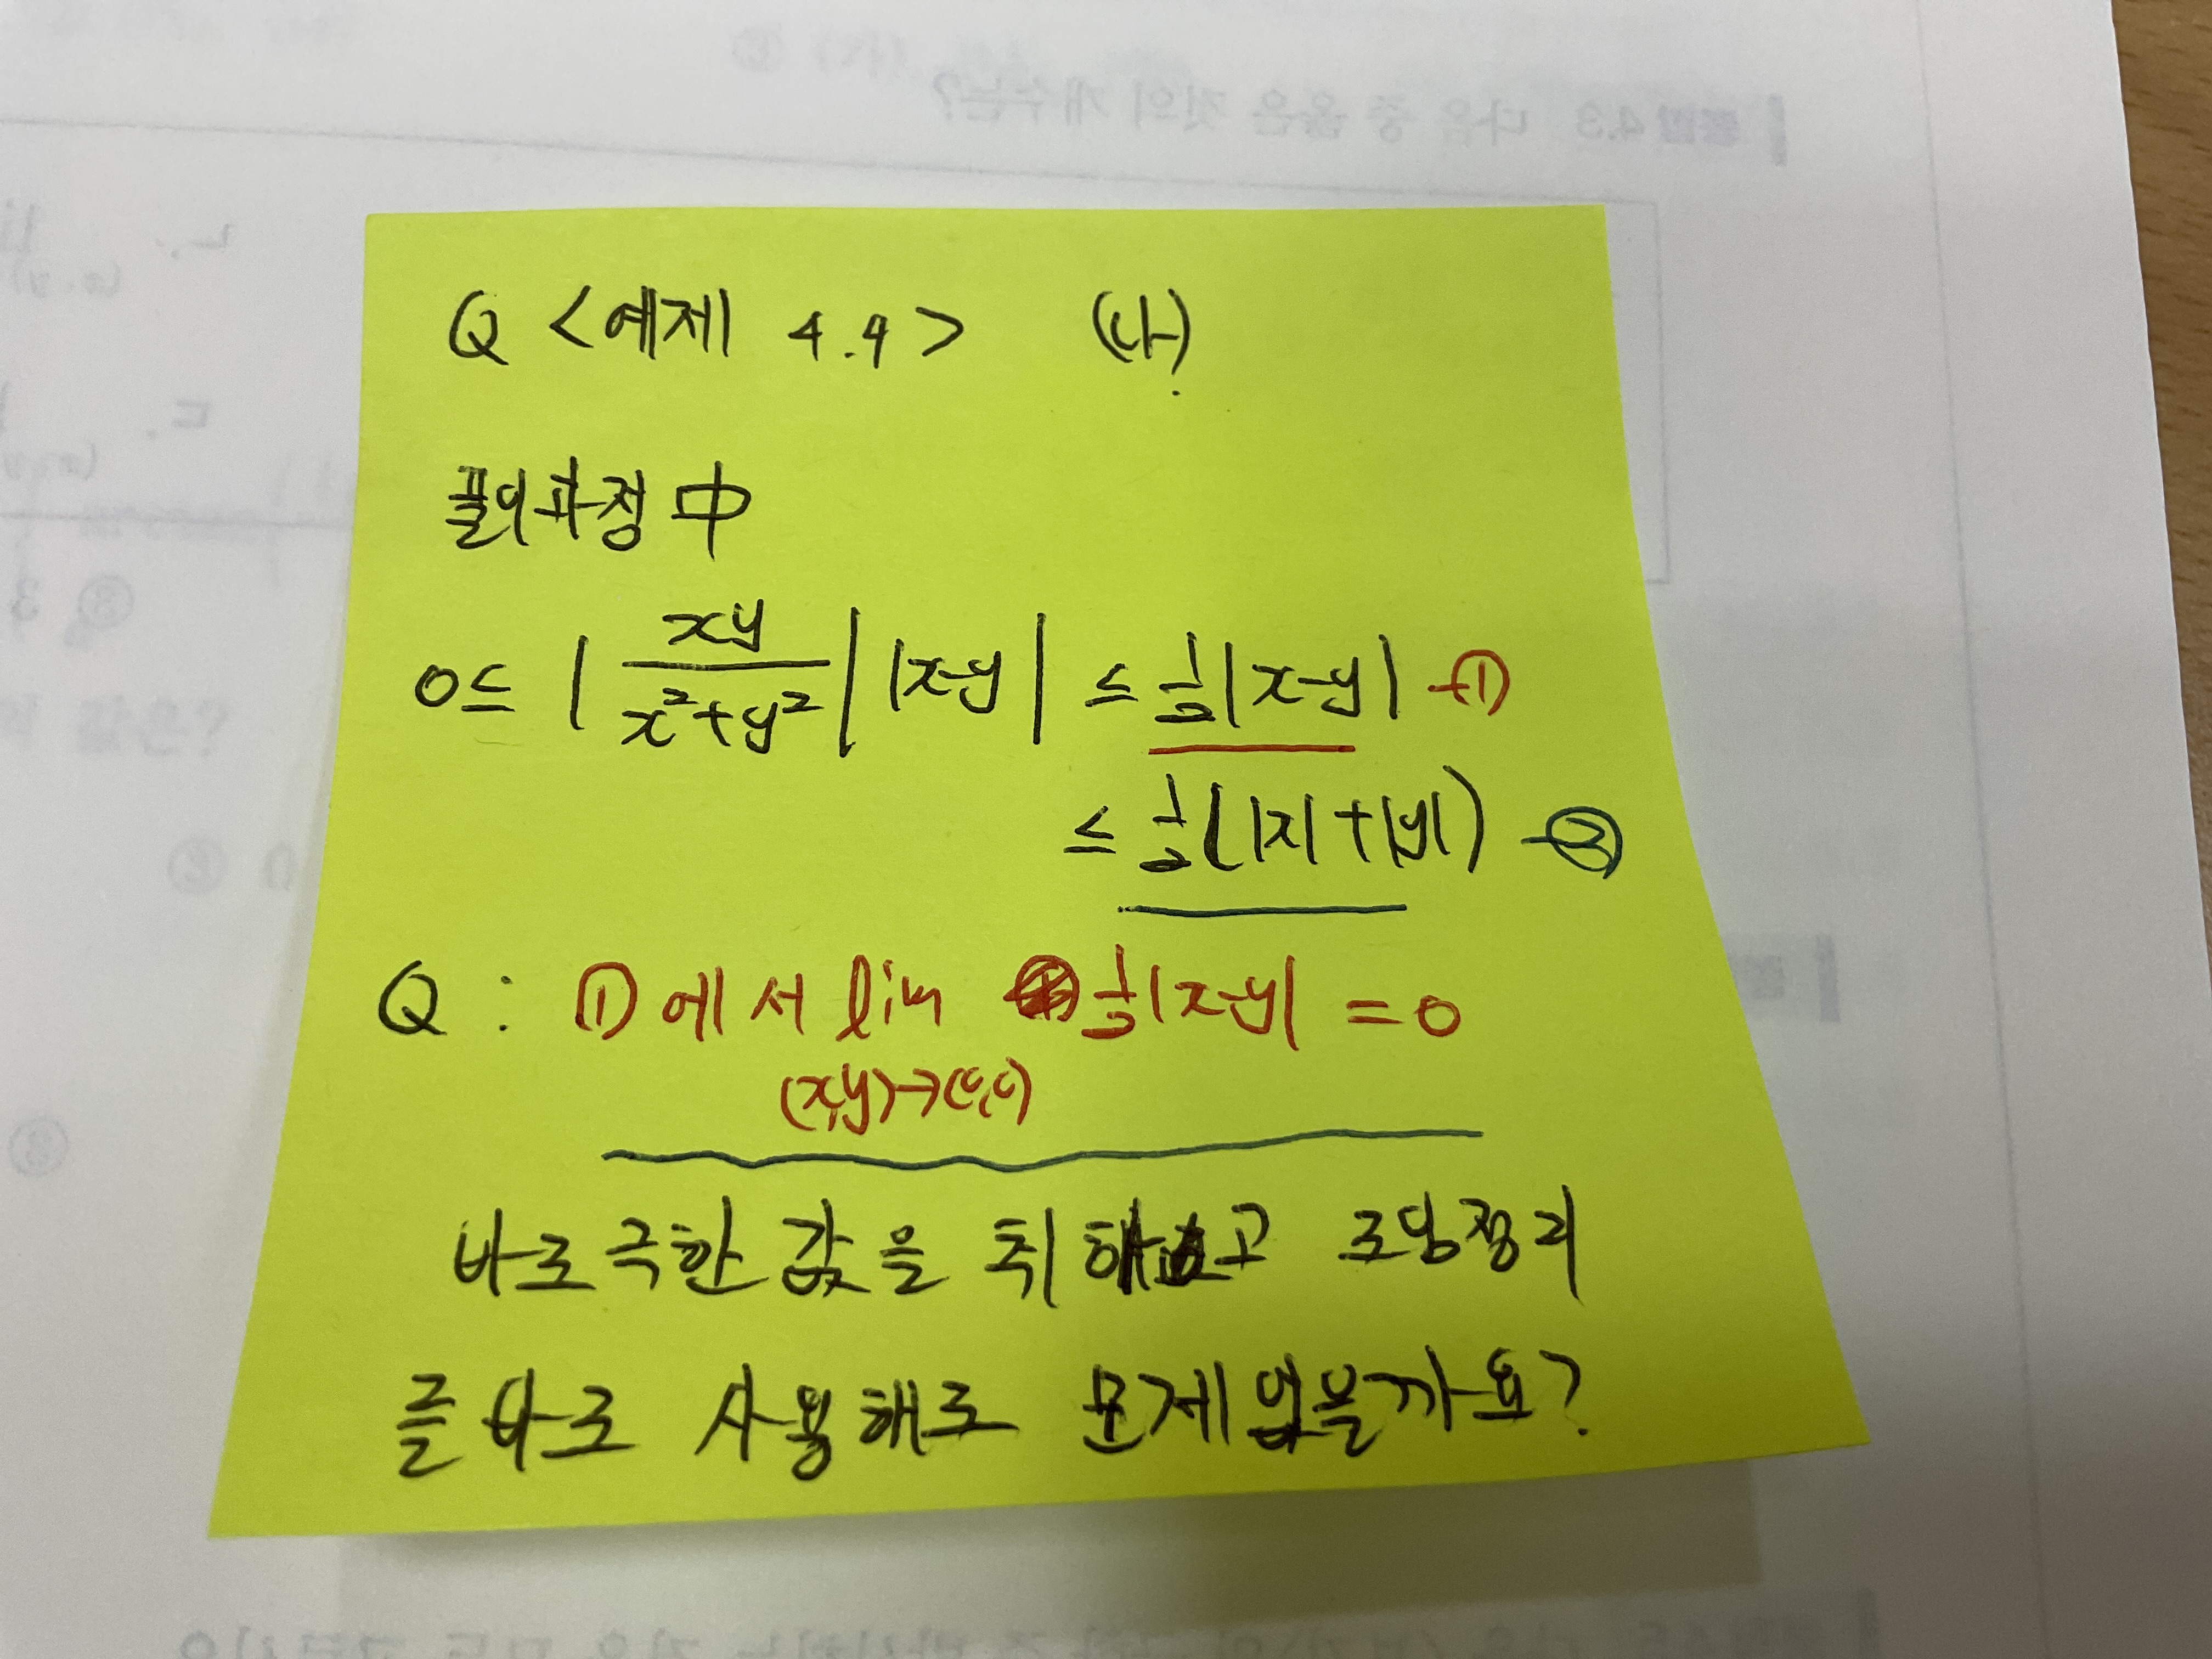 Q <예제 4.4> (나)
풀이과정 中
0≤ |xy/x²+y²| |x-y| ≤ ½|x-y| -①
≤ ½(|x|+|y|) -②
Q : ①에서 lim ½|x-y| = 0
(x,y)→(0,0)
바로 극한 값을 취하고 조임정리
를 바로 사용해도 문제 없을까요?